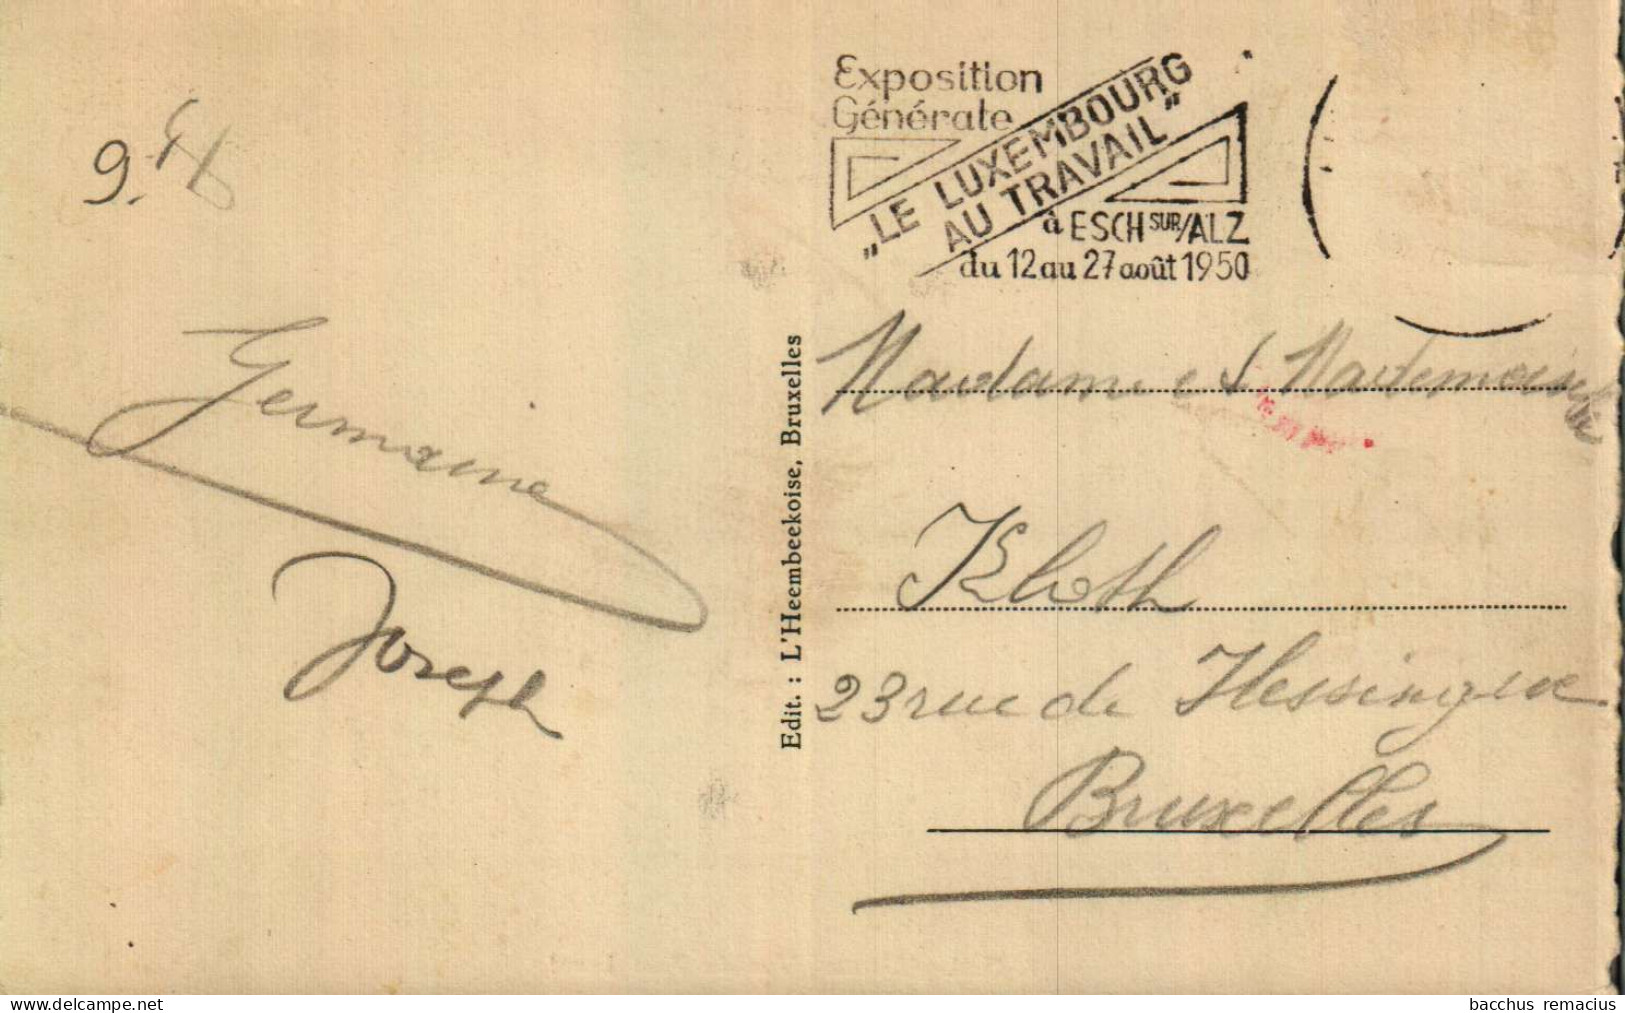 Exposition
Générale
„LE LUXEMBOURG
AU TRAVAIL"
à ESCH SUR/ALZ
du 12 au 27 août 1950
Germaine
Joseph
Edit. : L'Heembeekoise, Bruxelles
Madame et Mademoiselle
Kloth
23 rue de Flessingue
Bruxelles
bacchus remacius